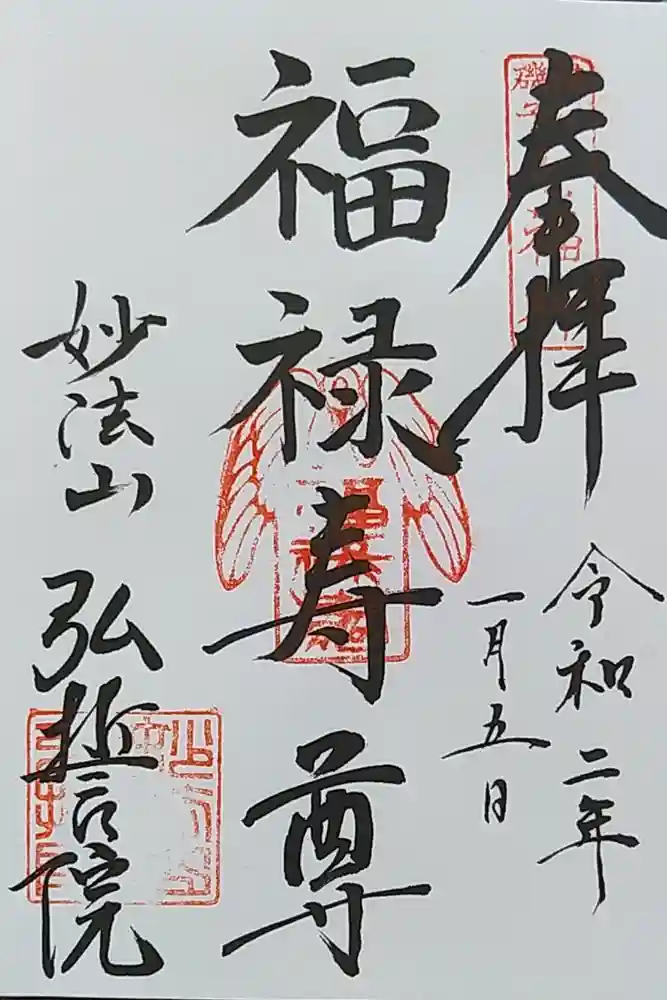 奉拝
令和二年
一月五日
福禄寿尊
妙法山
弘誓院